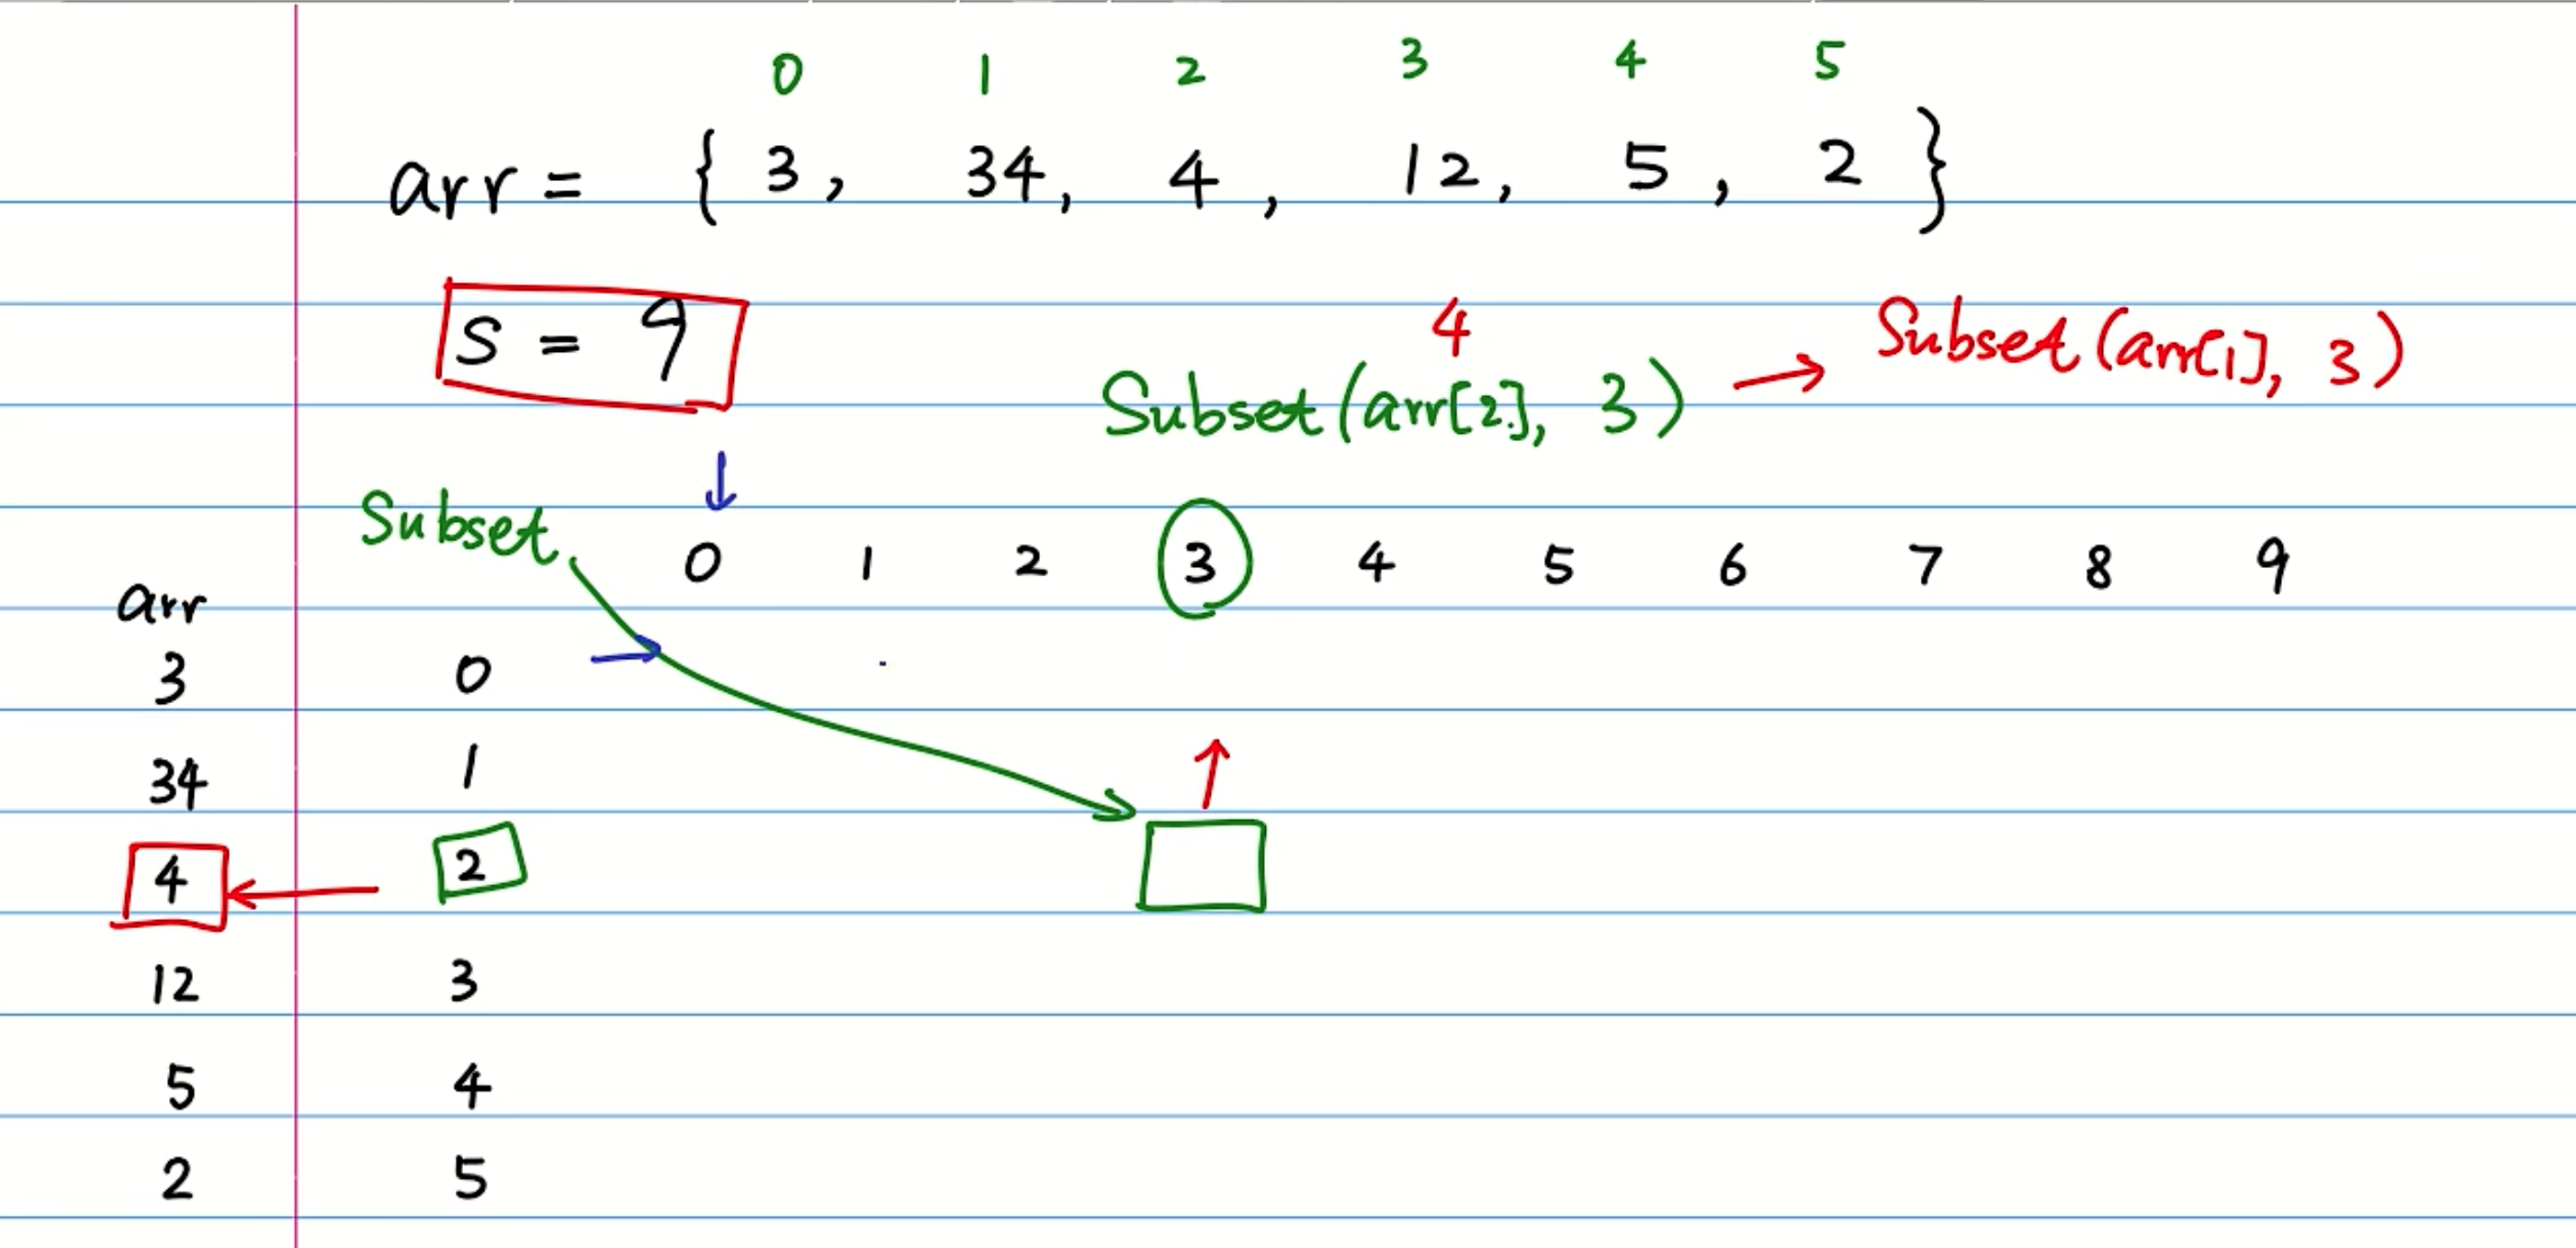 0 1 2 3 4 5
arr = { 3, 34, 4, 12, 5, 2 }
S = 9
4
Subset(arr[2], 3) → Subset(arr[1], 3)
Subset
0 1 2 3 4 5 6 7 8 9
arr
3 0
34 1
4 2
12 3
5 4
2 5